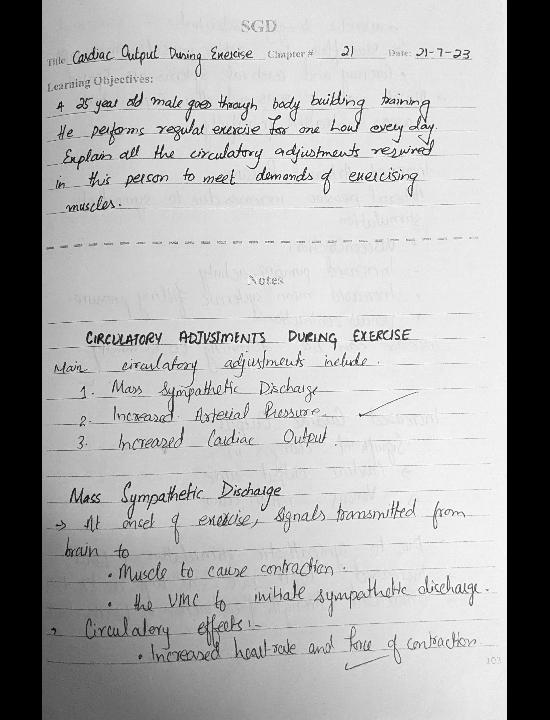 SGD
Title Cardiac Output During Exercise Chapter # 21 Date: 21-7-23
Learning Objectives:
A 25 year old male goes through body building training
He performs regular exercise for one hour every day.
Explain all the circulatory adjustments required
in this person to meet demands of exercising
muscles.
Notes
CIRCULATORY ADJUSTMENTS DURING EXERCISE
Main circulatory adjustments include.
1. Mass Sympathetic Discharge
2. Increased Arterial Pressure
3. Increased Cardiac Output.
Mass Sympathetic Discharge
→ At onset of exercise, signals transmitted from
brain to
• Muscle to cause contraction.
• the VMC to initiate sympathetic discharge.
→ Circulatory effects:-
• Increased heart rate and force of contraction
103